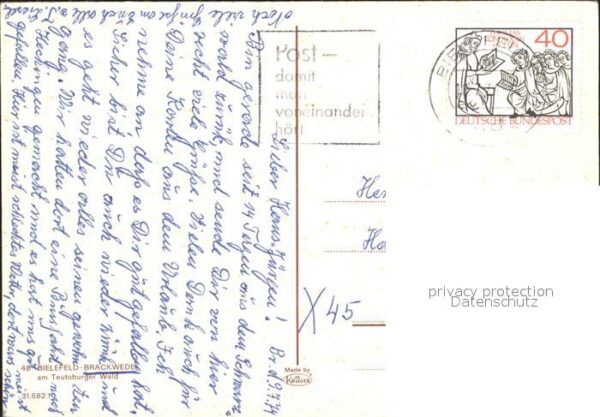 Br. d. 9.7.74
Lieber Hans-Jürgen!
Bin gerade seit 14 Tagen aus dem Schwarz-
wald zurück und sende Dir von hier
recht viele Grüße. Vielen Dank auch für
Deine Karten aus dem Urlaub. Ich
nehme an daß es Dir gut gefallen hat.
Sicher bist Du auch wieder zurück und
es geht wieder alles seinen gewohnten
Gang. Wir hatten dort eine Busfahrt nach
Hechingen gemacht und es hat uns gut
gefallen. Hier ist meist schlechtes Wetter, dort war's schön
Noch viele Grüße an Euch alle
Post –
damit
man
voneinander
hört
BIELEFELD
40
DEUTSCHE BUNDESPOST
X 45
48 BIELEFELD-BRACKWEDE
am Teutoburger Wald
31.682.1
Made by
KRÜGER
privacy protection
Datenschutz